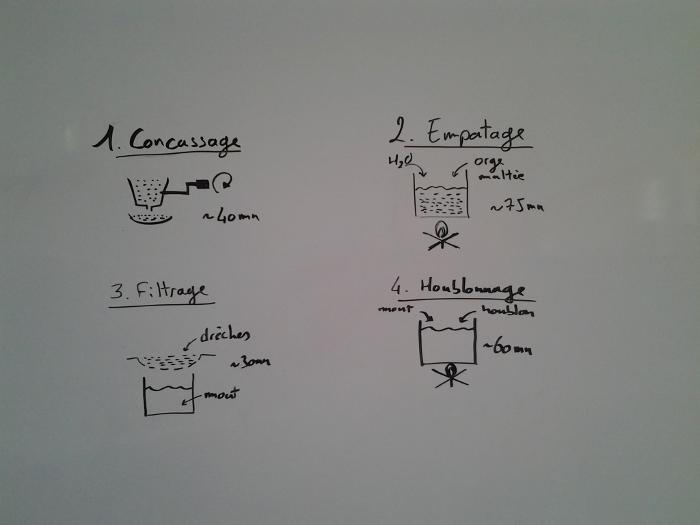 1. Concassage
~40mn
2. Empatage
H2O
orge
maltée
~75mn
3. Filtrage
drèches
~30mn
mout
4. Houblonnage
mout
houblon
~60mn